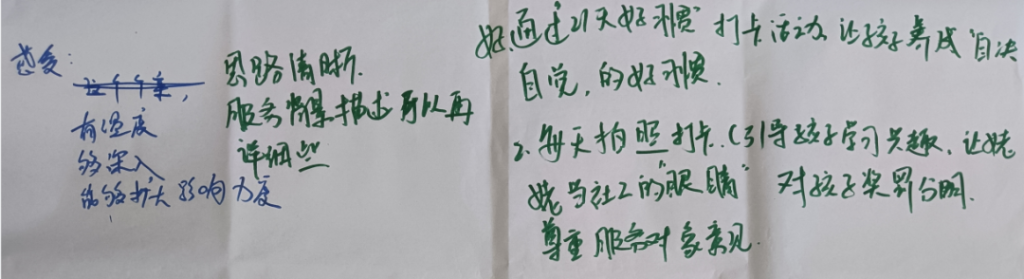 感受:
有温度
够深入
能够扩大影响力度
思路清晰.
服务情景描述可以再
详细些
如通过21天好习惯"打卡活动,让孩子养成"自决
自觉,的好习惯.
2.每天拍照打卡.(引导孩子学习兴趣,让姥
姥当社工的"眼睛" 对孩子奖罚分明.
尊重服务对象意见.